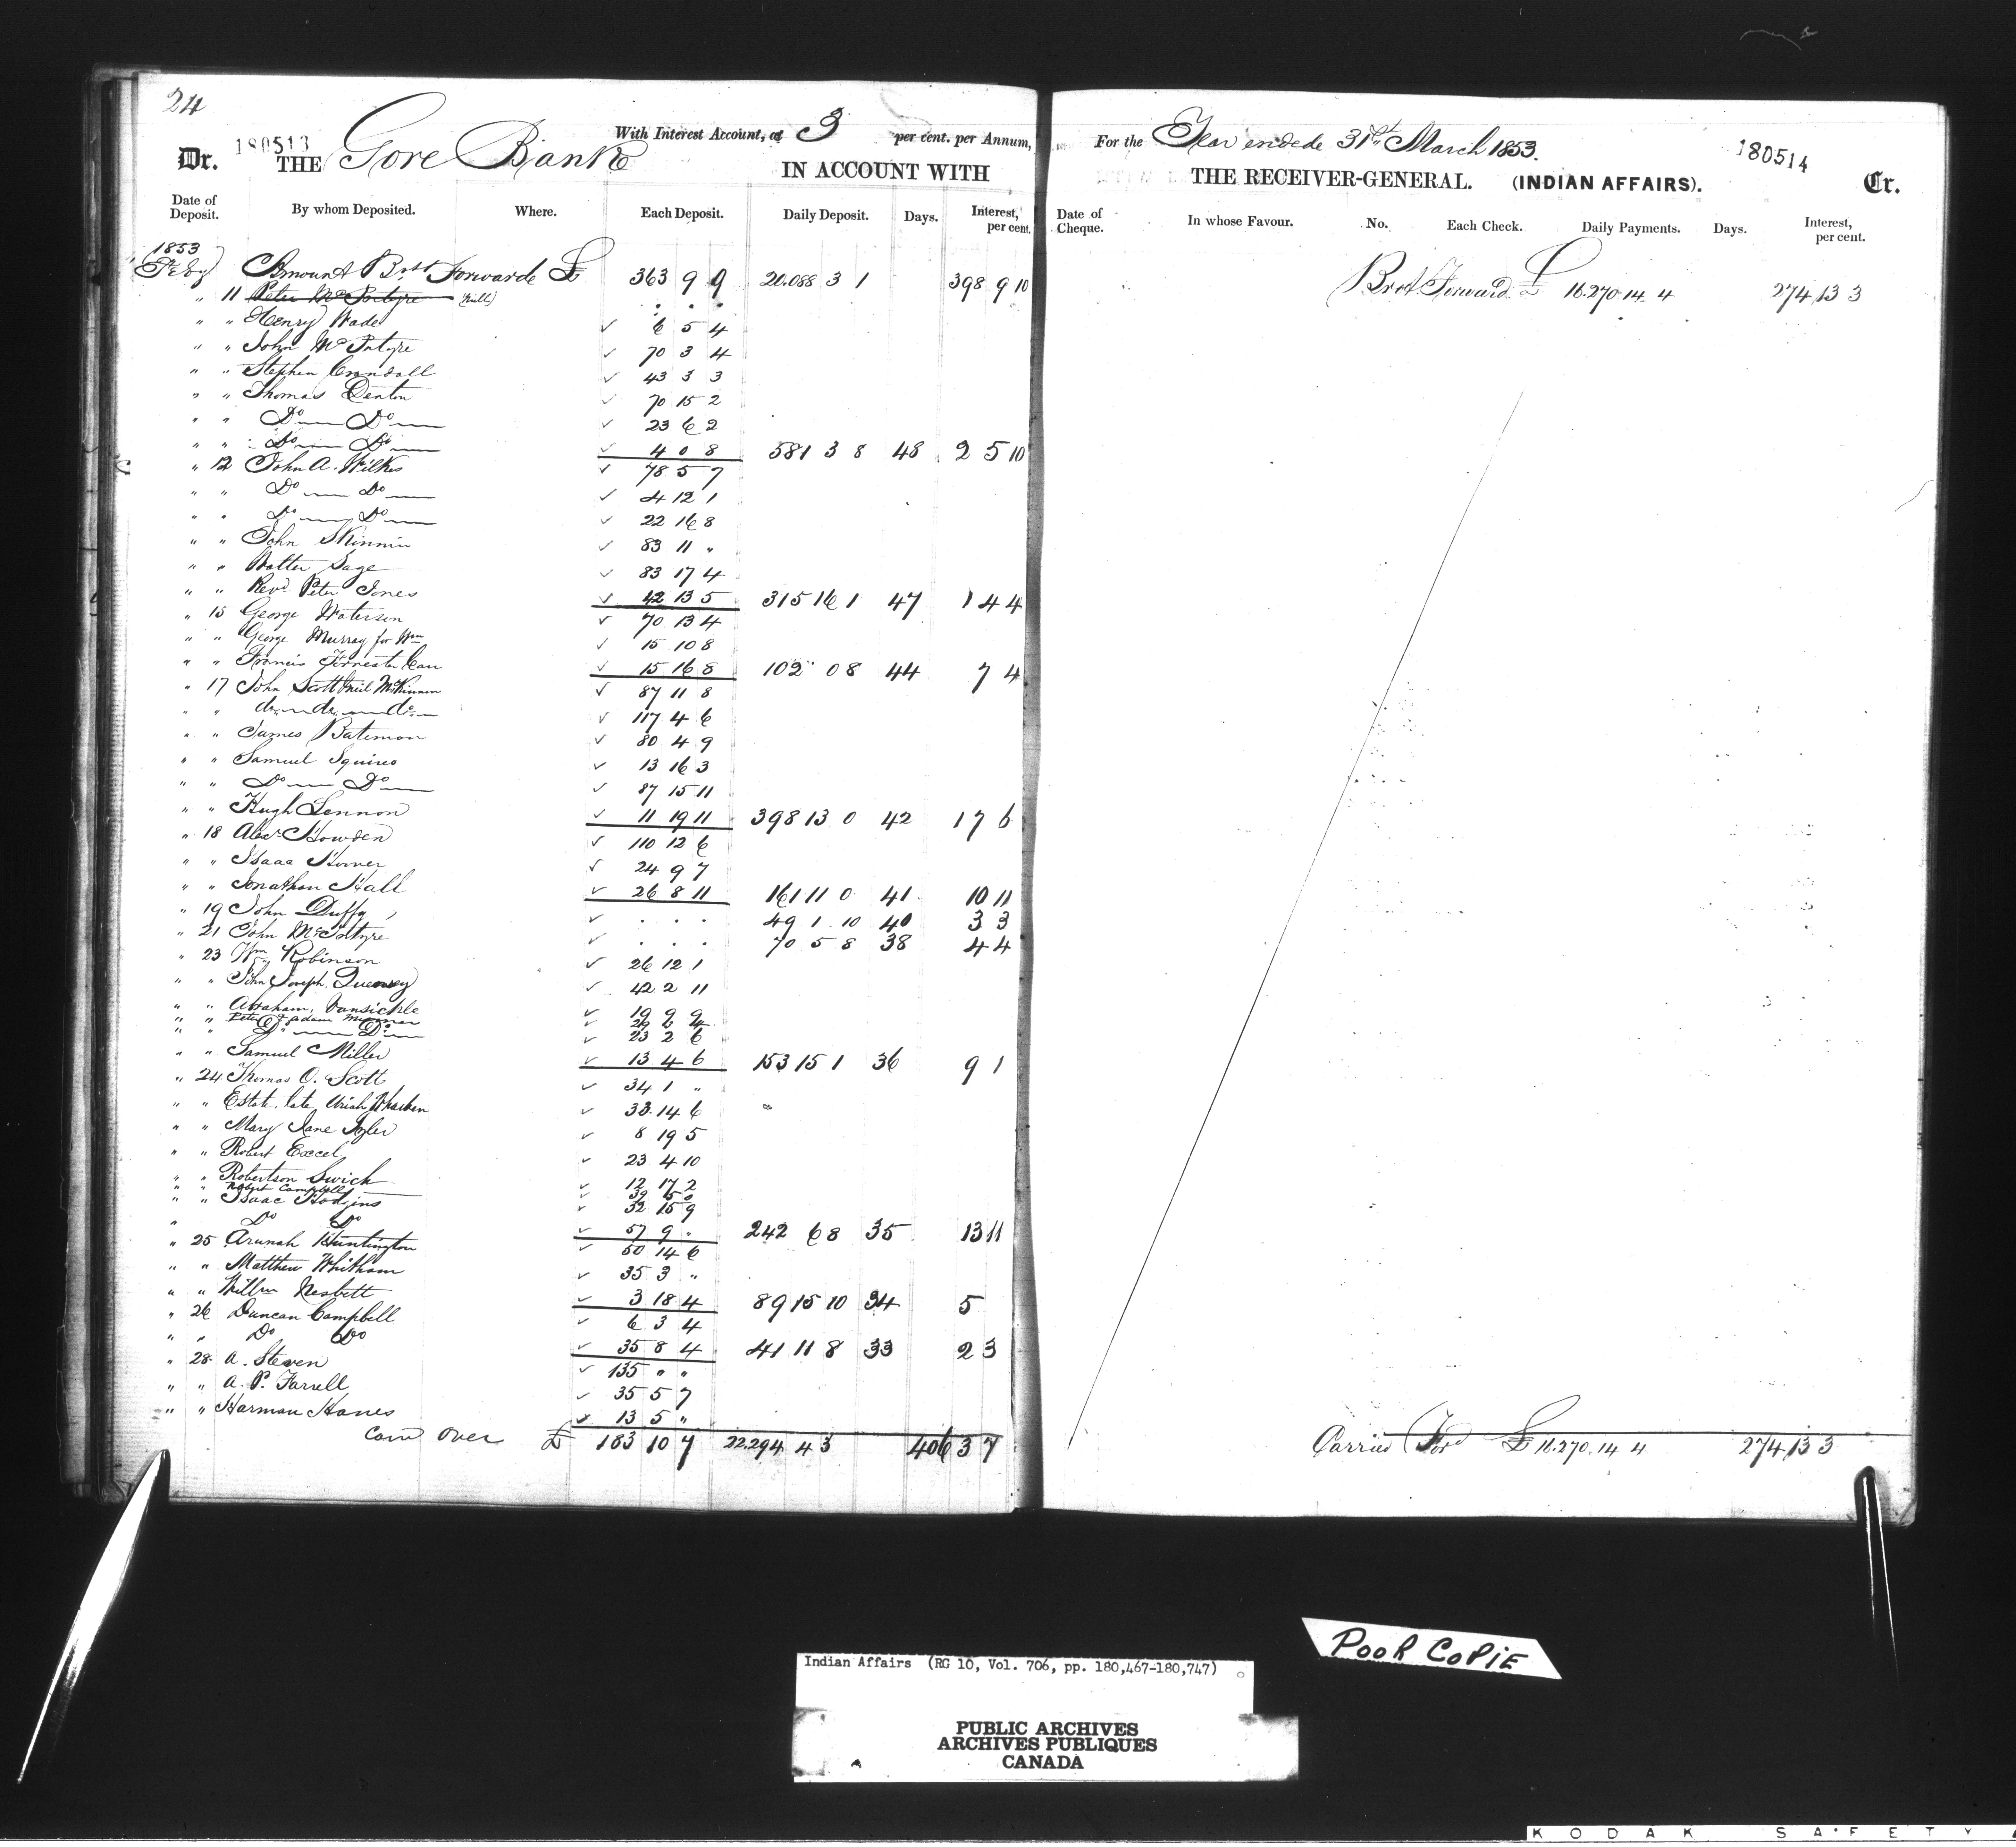 24
180513
Dr. THE Gore Bank With Interest Account, at 3 per cent. per Annum,
IN ACCOUNT WITH
Date of Deposit. By whom Deposited. Where. Each Deposit. Daily Deposit. Days. Interest, per cent.
1853
Feby Amount Brot Forwarde £ 363 9 9 20.088 3 1 398 9 10
" 11 Peter McIntyre (null) . . .
" " Henry Wade ✓ 6 5 4
" " John McIntyre ✓ 70 3 4
" " Stephen Crandall ✓ 43 3 3
" " Thomas Denton ✓ 70 15 2
" " Do Do ✓ 23 6 2
" " Do Do ✓ 4 0 8 581 3 8 48 2 5 10
" 12 John A. Wilkes ✓ 78 5 7
" " Do Do ✓ 4 12 1
" " Do Do ✓ 22 16 8
" " John Skinnin ✓ 83 11 "
" " Walter Sage ✓ 83 17 4
" " Revd Peter Jones ✓ 42 13 5 315 16 1 47 1 4 4
" 15 George Waterson ✓ 70 13 4
" " George Murray for Wm ✓ 15 10 8
" " Francis Forrester ✓ 15 16 8 102 0 8 44 7 4
" 17 John Scott Neil McKinnon ✓ 87 11 8
" " do do do ✓ 117 4 6
" " James Bateman ✓ 80 4 9
" " Samuel Squires ✓ 13 16 3
" " Do Do ✓ 87 15 11
" " Hugh Lennon ✓ 11 19 11 398 13 0 42 1 7 6
" 18 Alexr Howden ✓ 110 12 6
" " Isaac Horner ✓ 24 9 7
" " Jonathan Hall ✓ 26 8 11 161 11 0 41 10 11
" 19 John Duffy ✓ . . . 49 1 10 40 3 3
" 21 John McIntyre ✓ . . . 70 5 8 38 4 4
" 23 Wm Robinson ✓ 26 12 1
" " John Joseph ✓ 42 2 11
" " Abraham Vansickle ✓ 19 9 9
" " Peter & Adam ✓ 29 2 4
" " Do Do ✓ 23 2 6
" " Samuel Miller ✓ 13 4 6 153 15 1 36 9 1
" 24 Thomas O. Scott ✓ 34 1 "
" " Estate late Uriah ✓ 33 14 6
" " Mary Jane ✓ 8 19 5
" " Robert Excel ✓ 23 4 10
" " Robertson Swich ✓ 12 17 2
" " Robert Campbell ✓ 39 5 0
" " Isaac Hodgins ✓ 32 15 9
" Do Do ✓ 57 9 " 242 6 8 35 13 11
" 25 Arunah Huntington ✓ 50 14 6
" " Matthew Whitham ✓ 35 3 "
" " Willm Nesbitt ✓ 3 18 4 89 15 10 34 5
" 26 Duncan Campbell ✓ 6 3 4
" " Do Do ✓ 35 8 4 41 11 8 33 2 3
" 28 A. Steven ✓ 135 " "
" " A. P. Farrell ✓ 35 5 7
" " Harman Hanes ✓ 13 5 "
Card over £ 183 10 7 22.294 4 3 406 3 7
For the Year endede 31st March 1853.
180514
THE RECEIVER-GENERAL. (INDIAN AFFAIRS). Cr.
Date of Cheque. In whose Favour. No. Each Check. Daily Payments. Days. Interest, per cent.
Brot Forward £ 16.270.14.4 274.13 3
Carried Ford £ 16.270.14 4 274.13 3
POOR COPIE
Indian Affairs (RG 10, Vol. 706, pp. 180,467-180,747)
PUBLIC ARCHIVES
ARCHIVES PUBLIQUES
CANADA
KODAK SAFETY